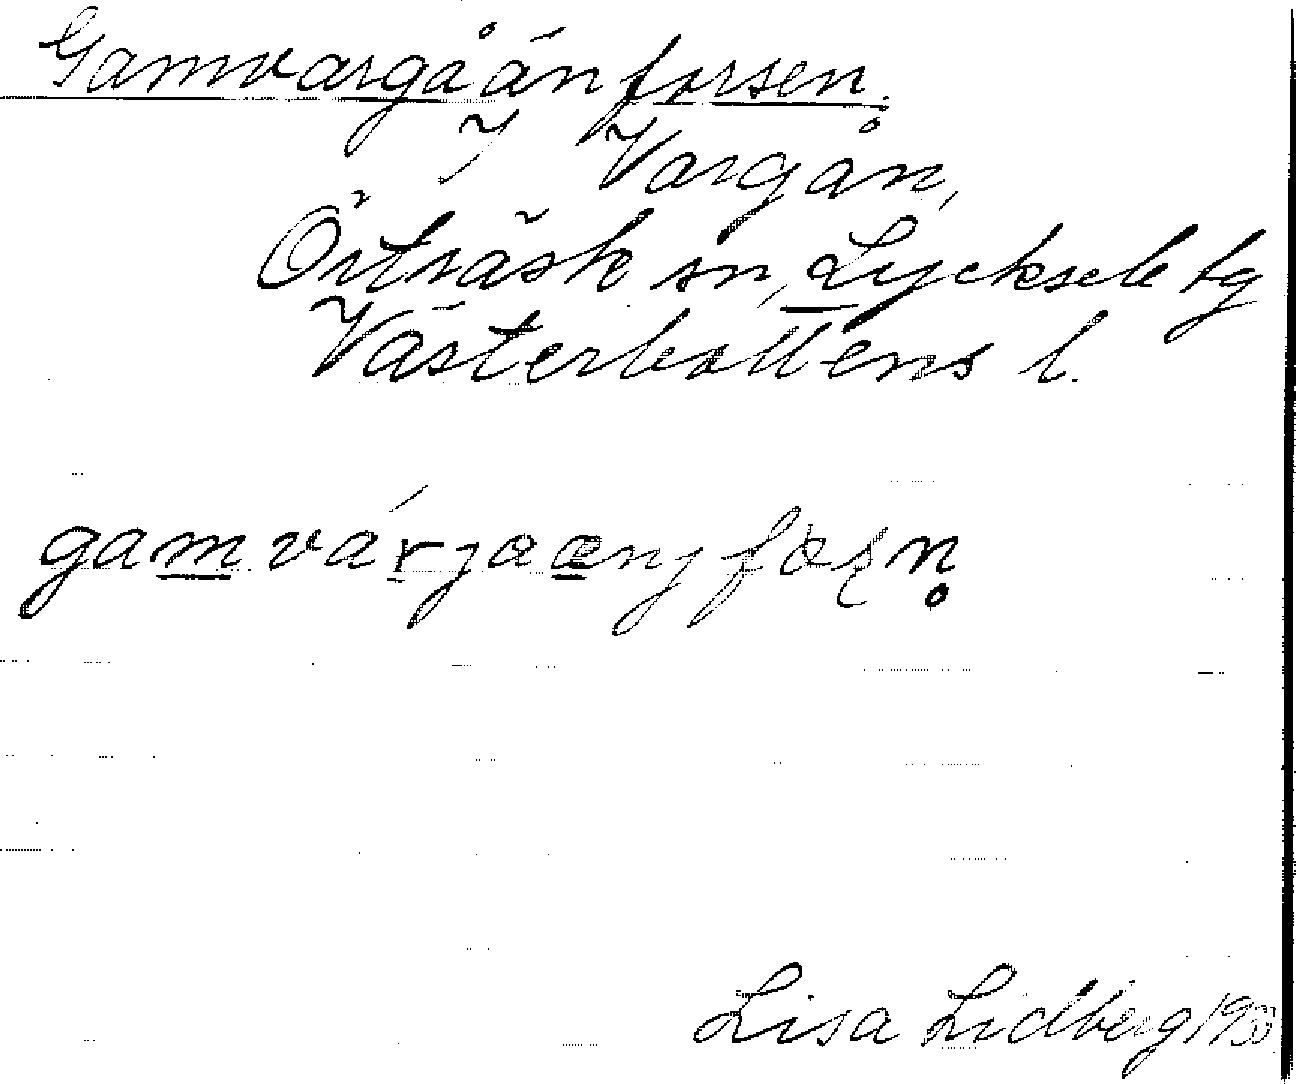 Gamvargåänforsen.
I Vargån,
Örträsk sn, Lycksele tg
Västerbottens l.
gamvárgaænjforsn̥
Lisa Lidberg 1950